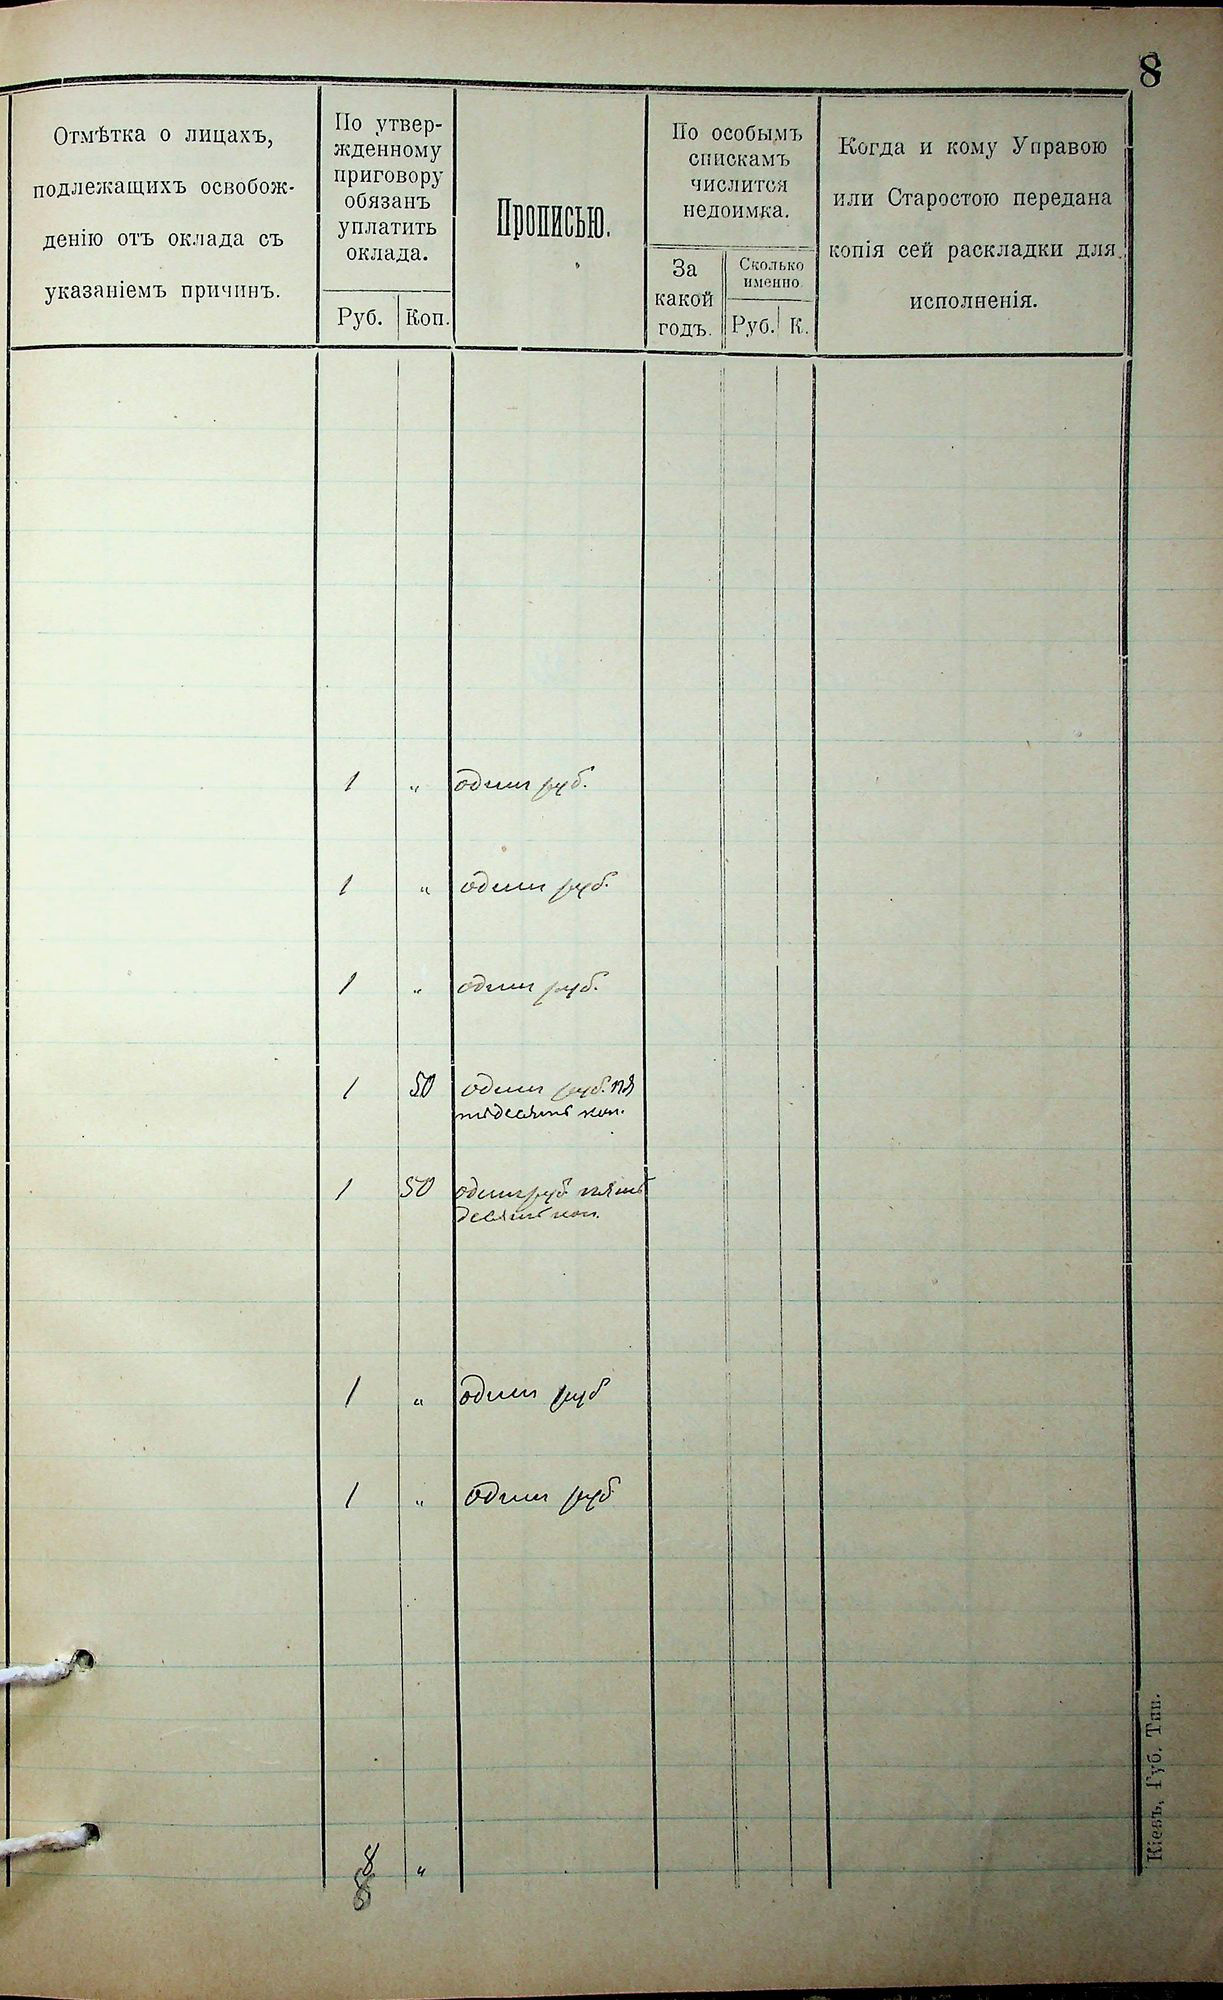 8
Отмѣтка о лицахъ,
подлежащихъ освобож-
денію отъ оклада съ
указаніемъ причинъ.
По утвер-
жденному
приговору
обязанъ
уплатить
оклада.
Руб. Коп.
Прописью.
По особымъ
спискамъ
числится
недоимка.
За
какой
годъ.
Сколько
именно
Руб. К.
Когда и кому Управою
или Старостою передана
копія сей раскладки для
исполненія.
1 „ один руб.
1 „ один руб.
1 „ один руб.
1 50 один руб. пя
тьдесятъ коп.
1 50 один руб. пять
десятъ коп.
1 „ один руб
1 „ один руб
8 „
8
Кіевъ, Губ. Тип.